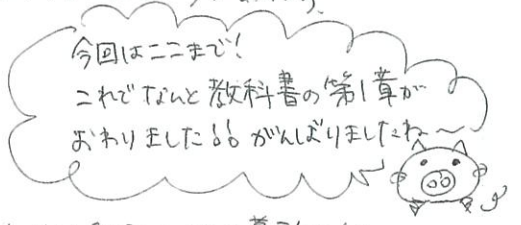 今回はここまで!
これでなんと教科書の第1章が
おわりました!! がんばりましたね～